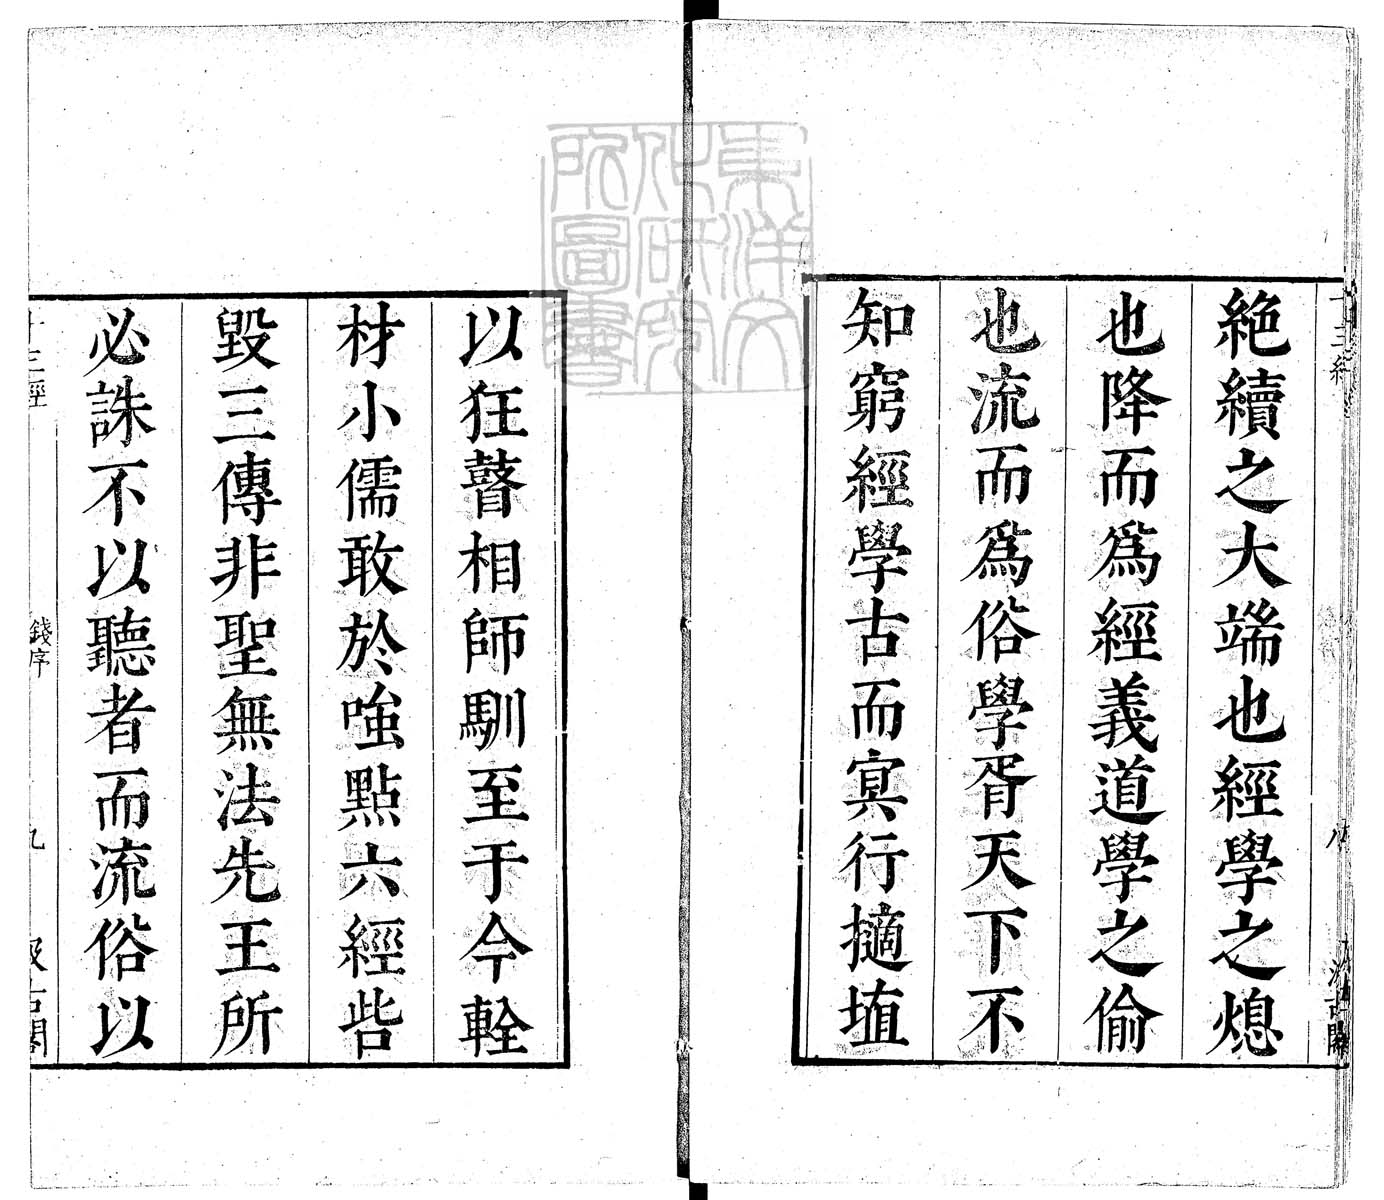 絶續之大端也經學之熄
也降而爲經義道學之偷
也流而爲俗學胥天下不
知窮經學古而冥行擿埴
以狂瞽相師馴至于今輇
材小儒敢於嗤點六經呰
毀三傳非聖無法先王所
必誅不以聽者而流俗以
十三經
錢序
九
汲古閣
東洋文
化研究
所圖書